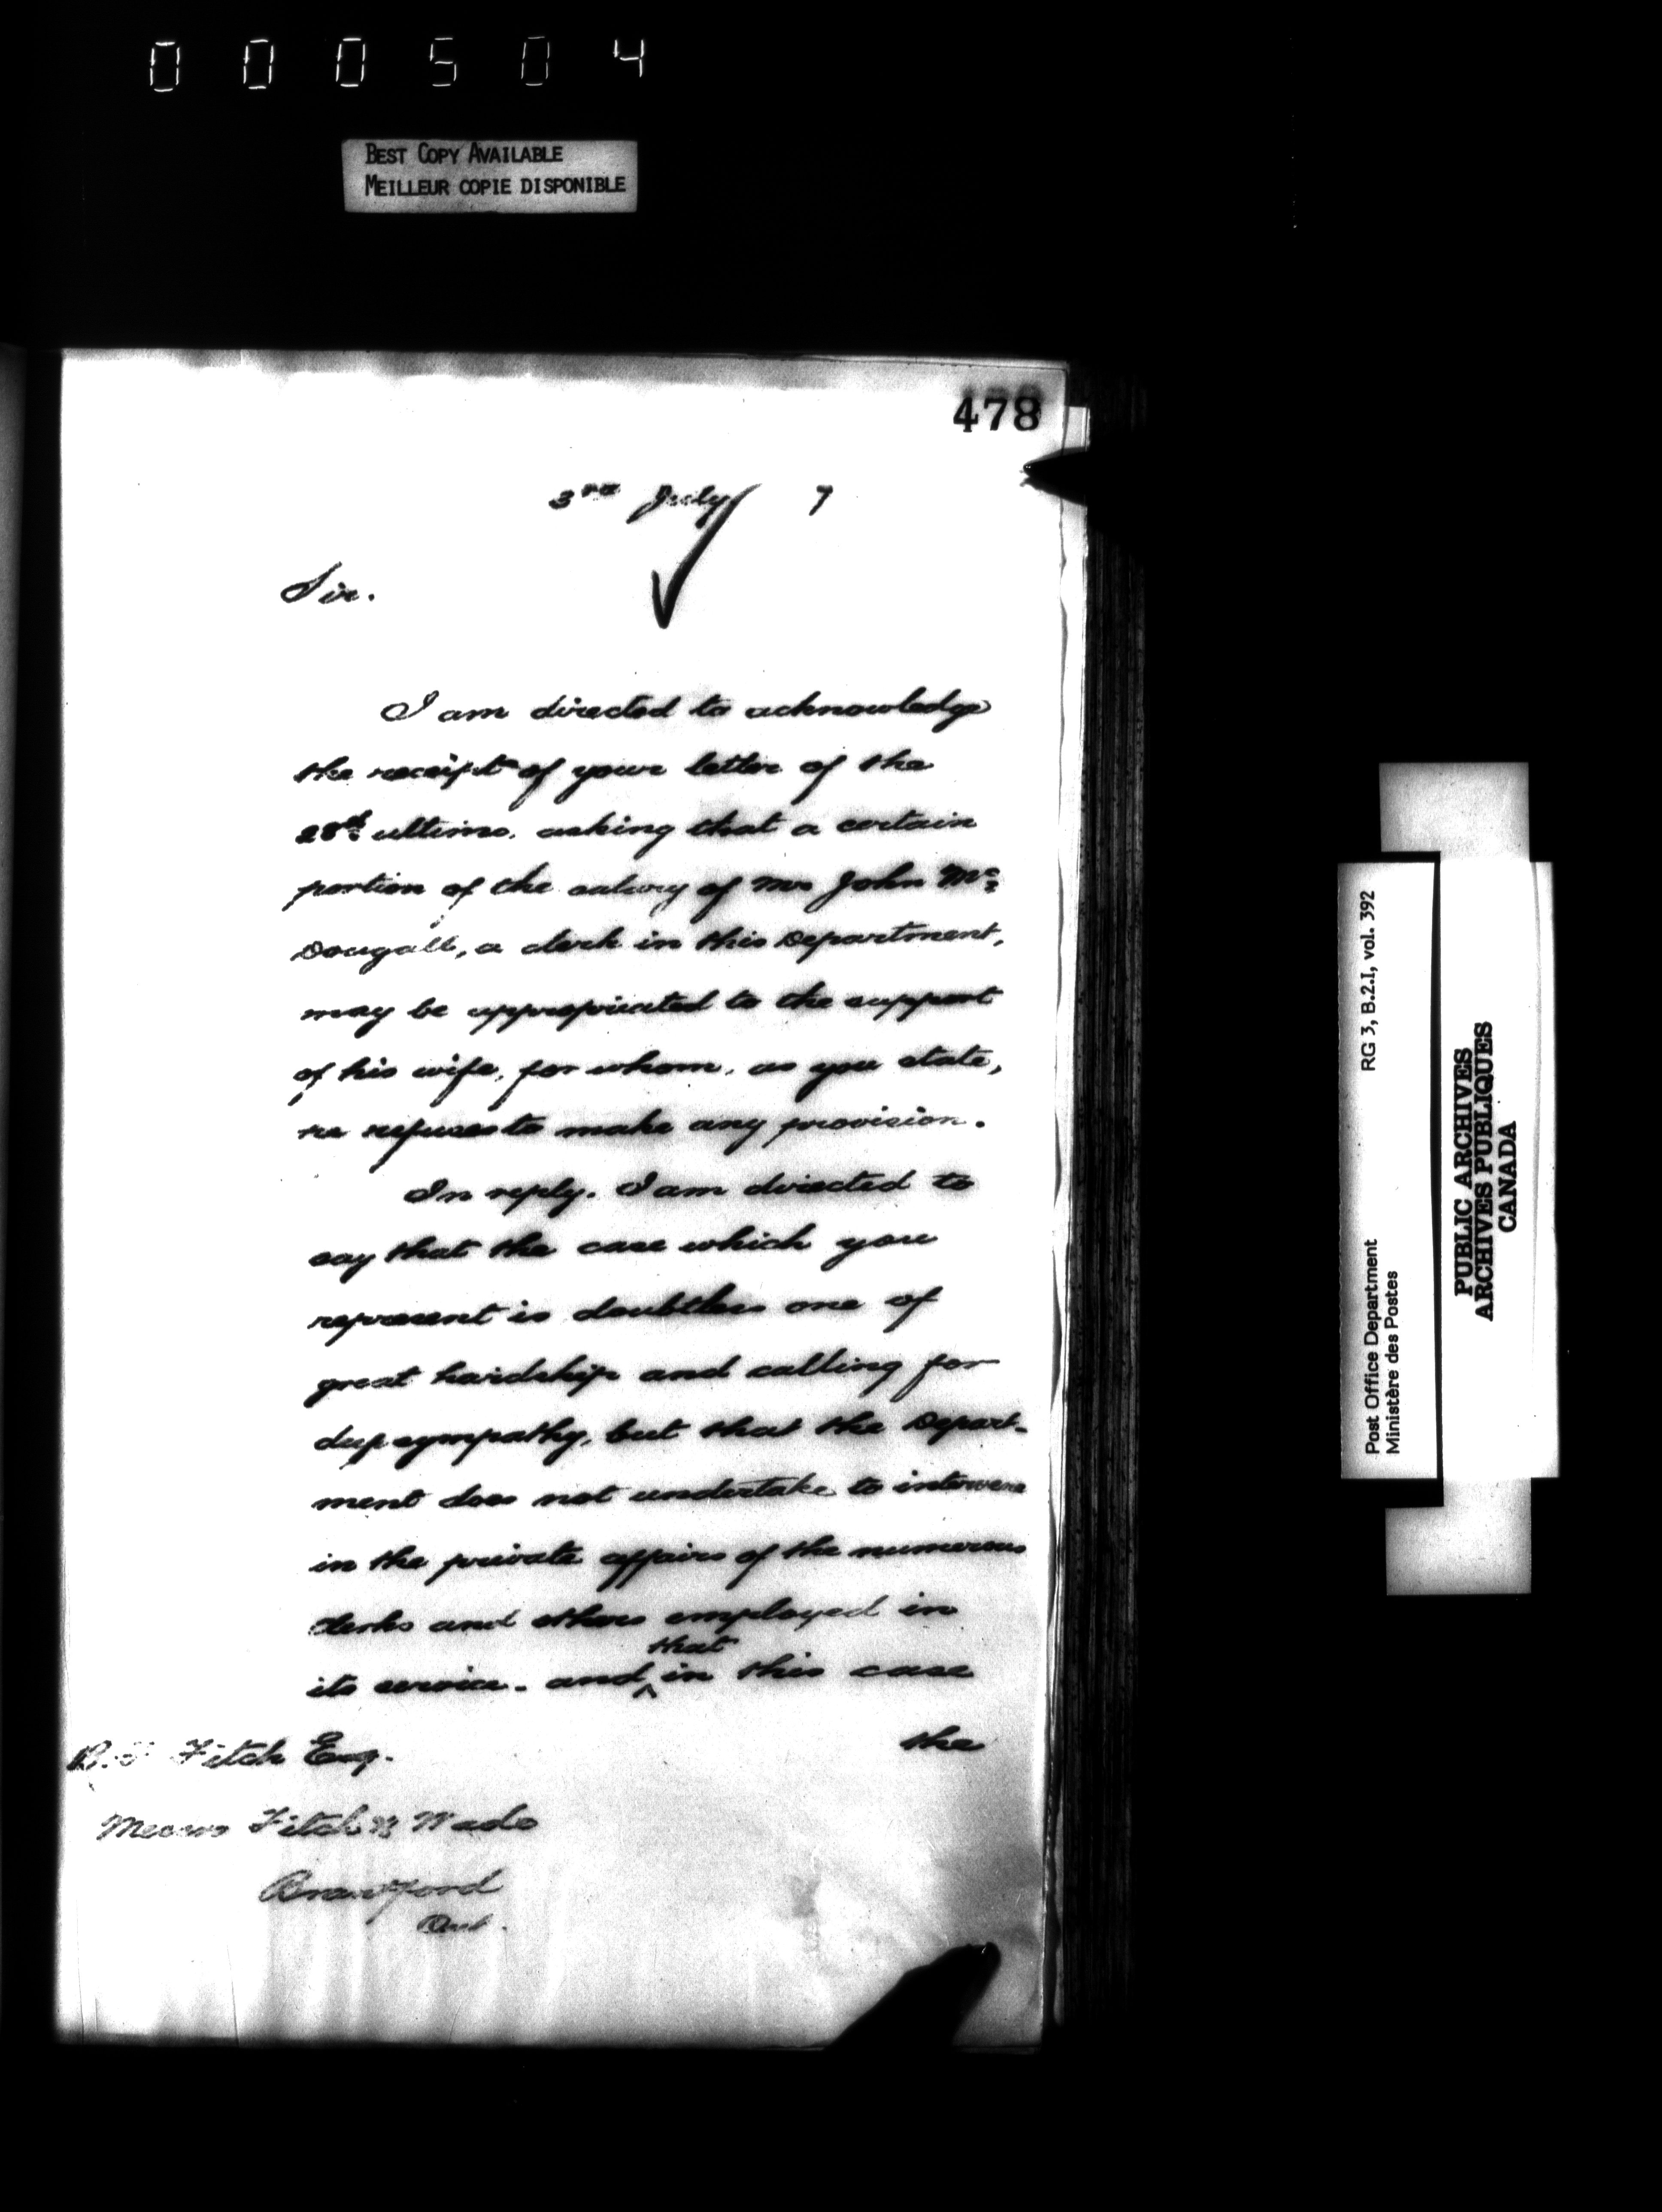 000504
BEST COPY AVAILABLE
MEILLEUR COPIE DISPONIBLE
478
3rd July 7
Sir.
I am directed to acknowledge
the receipt of your letter of the
28th ultimo, asking that a certain
portion of the salary of Mr John Mc
Dougall, a clerk in this Department,
may be appropriated to the support
of his wife, for whom, as you state,
he refuses to make any provision.
In reply, I am directed to
say that the case which you
represent is doubtless one of
great hardship and calling for
deep sympathy, but that the Depart-
ment does not undertake to intervene
in the private affairs of the numerous
clerks and others employed in
that
its service - and ^ in this case
the
Fitch Esq.
Messrs Fitch & Wade
Brantford
Ont.
Post Office Department RG 3, B.2.I, vol. 392
Ministère des Postes
PUBLIC ARCHIVES
ARCHIVES PUBLIQUES
CANADA